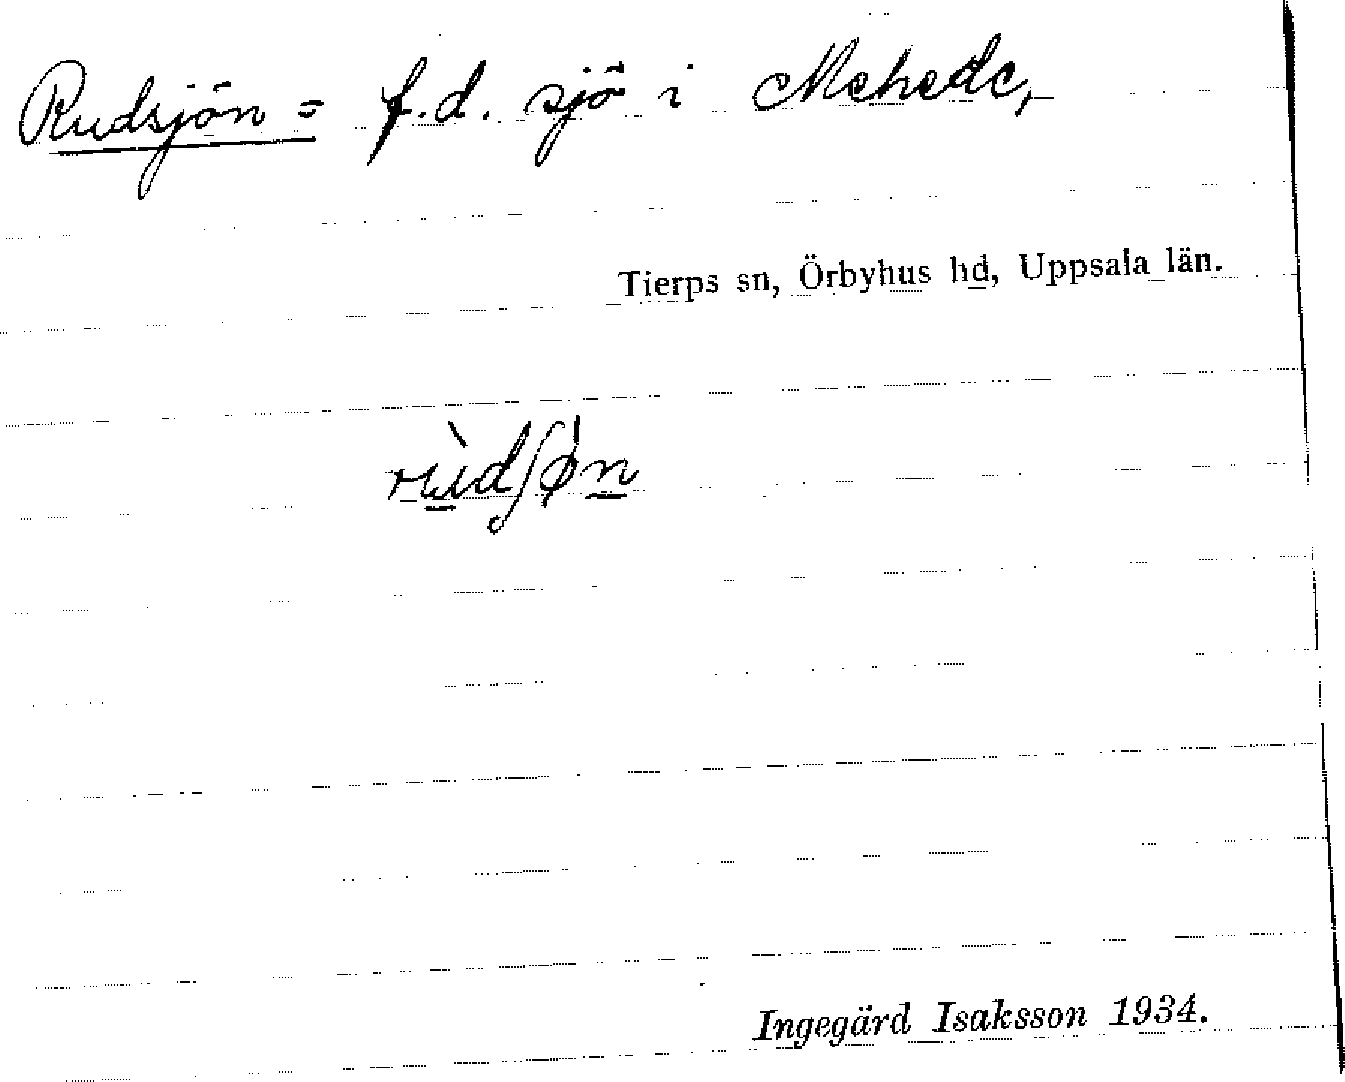 Rudsjön = f.d. sjö i Mehede,
Tierps sn, Örbyhus hd, Uppsala län.
rùdʃøn
Ingegärd Isaksson 1934.